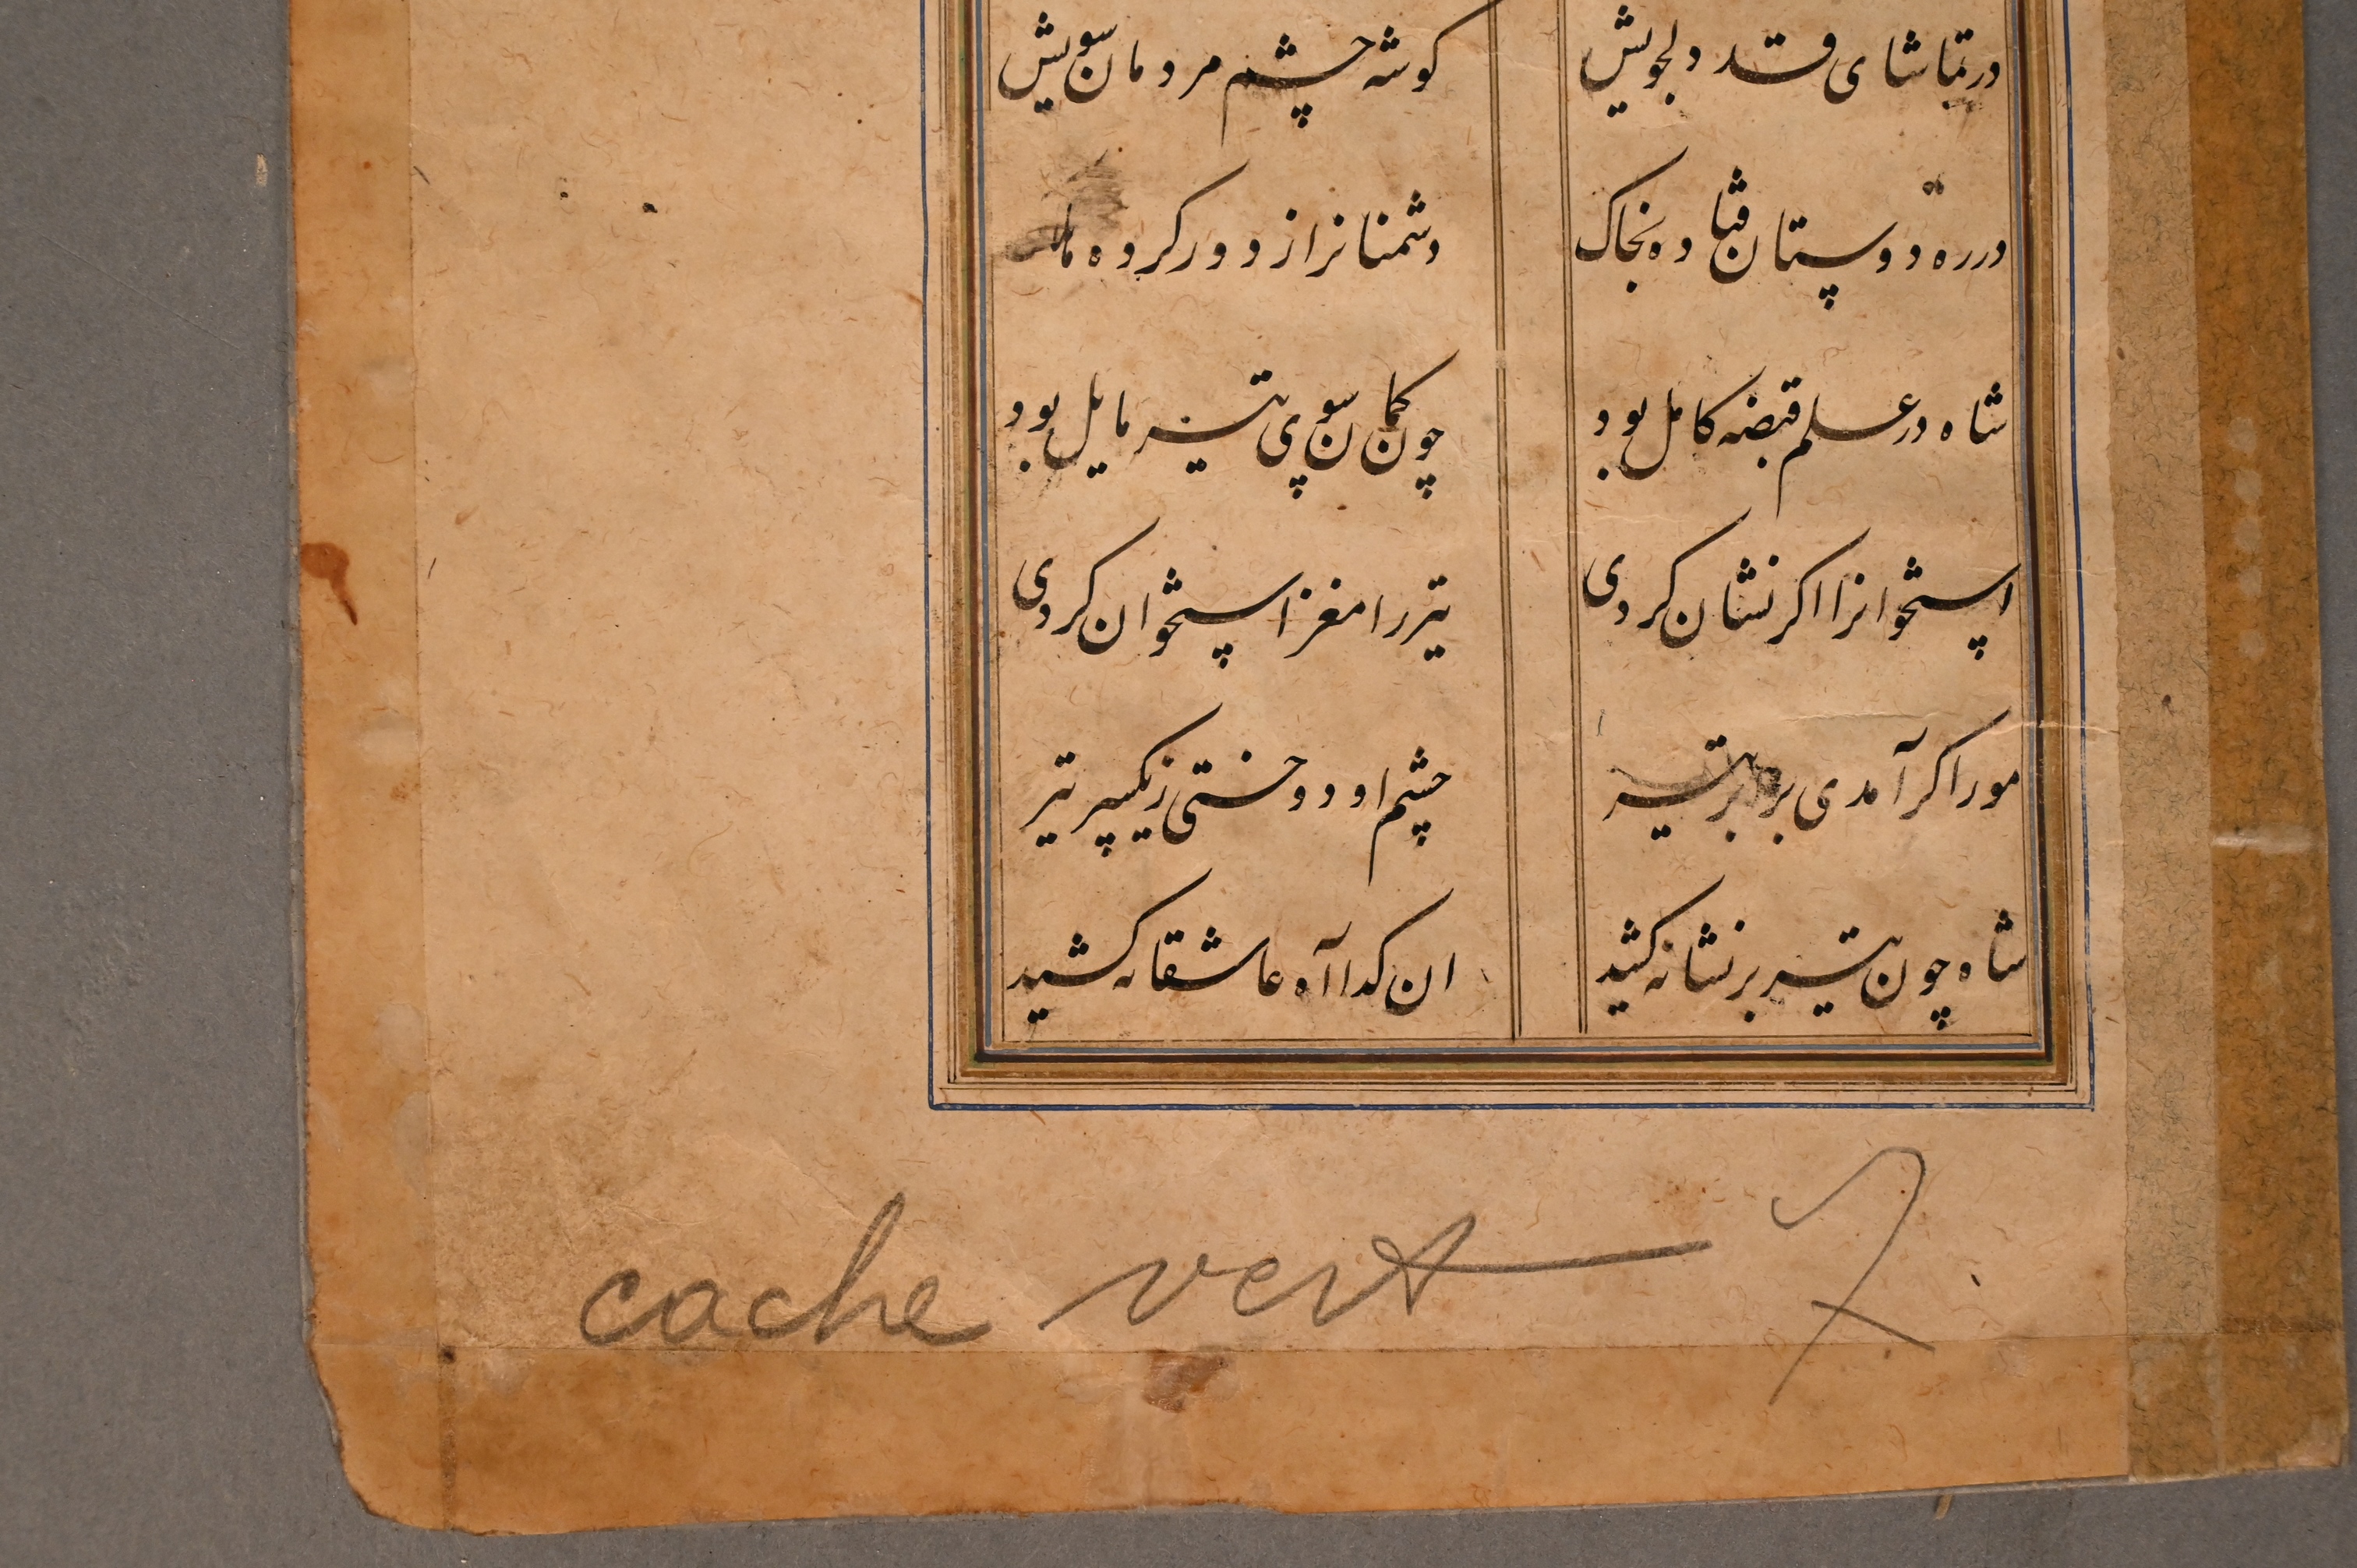 در تماشای قد دلجویش کوشه چشم مردمان سویش
در ره دوستان فتاده بخاک دشمنانرا ز دور کرده
شاه در علم قبضه کامل بود چون کمان سوی تیر مایل بود
استخوانرا اکر نشان کردی تیر را مغز استخوان کردی
مور اکر آمدی برابر تیر چشم او دوختی ز یکسر تیر
شاه چون تیر بر نشانه کشید ان کدا آه عاشقانه کشید
cache vert 7